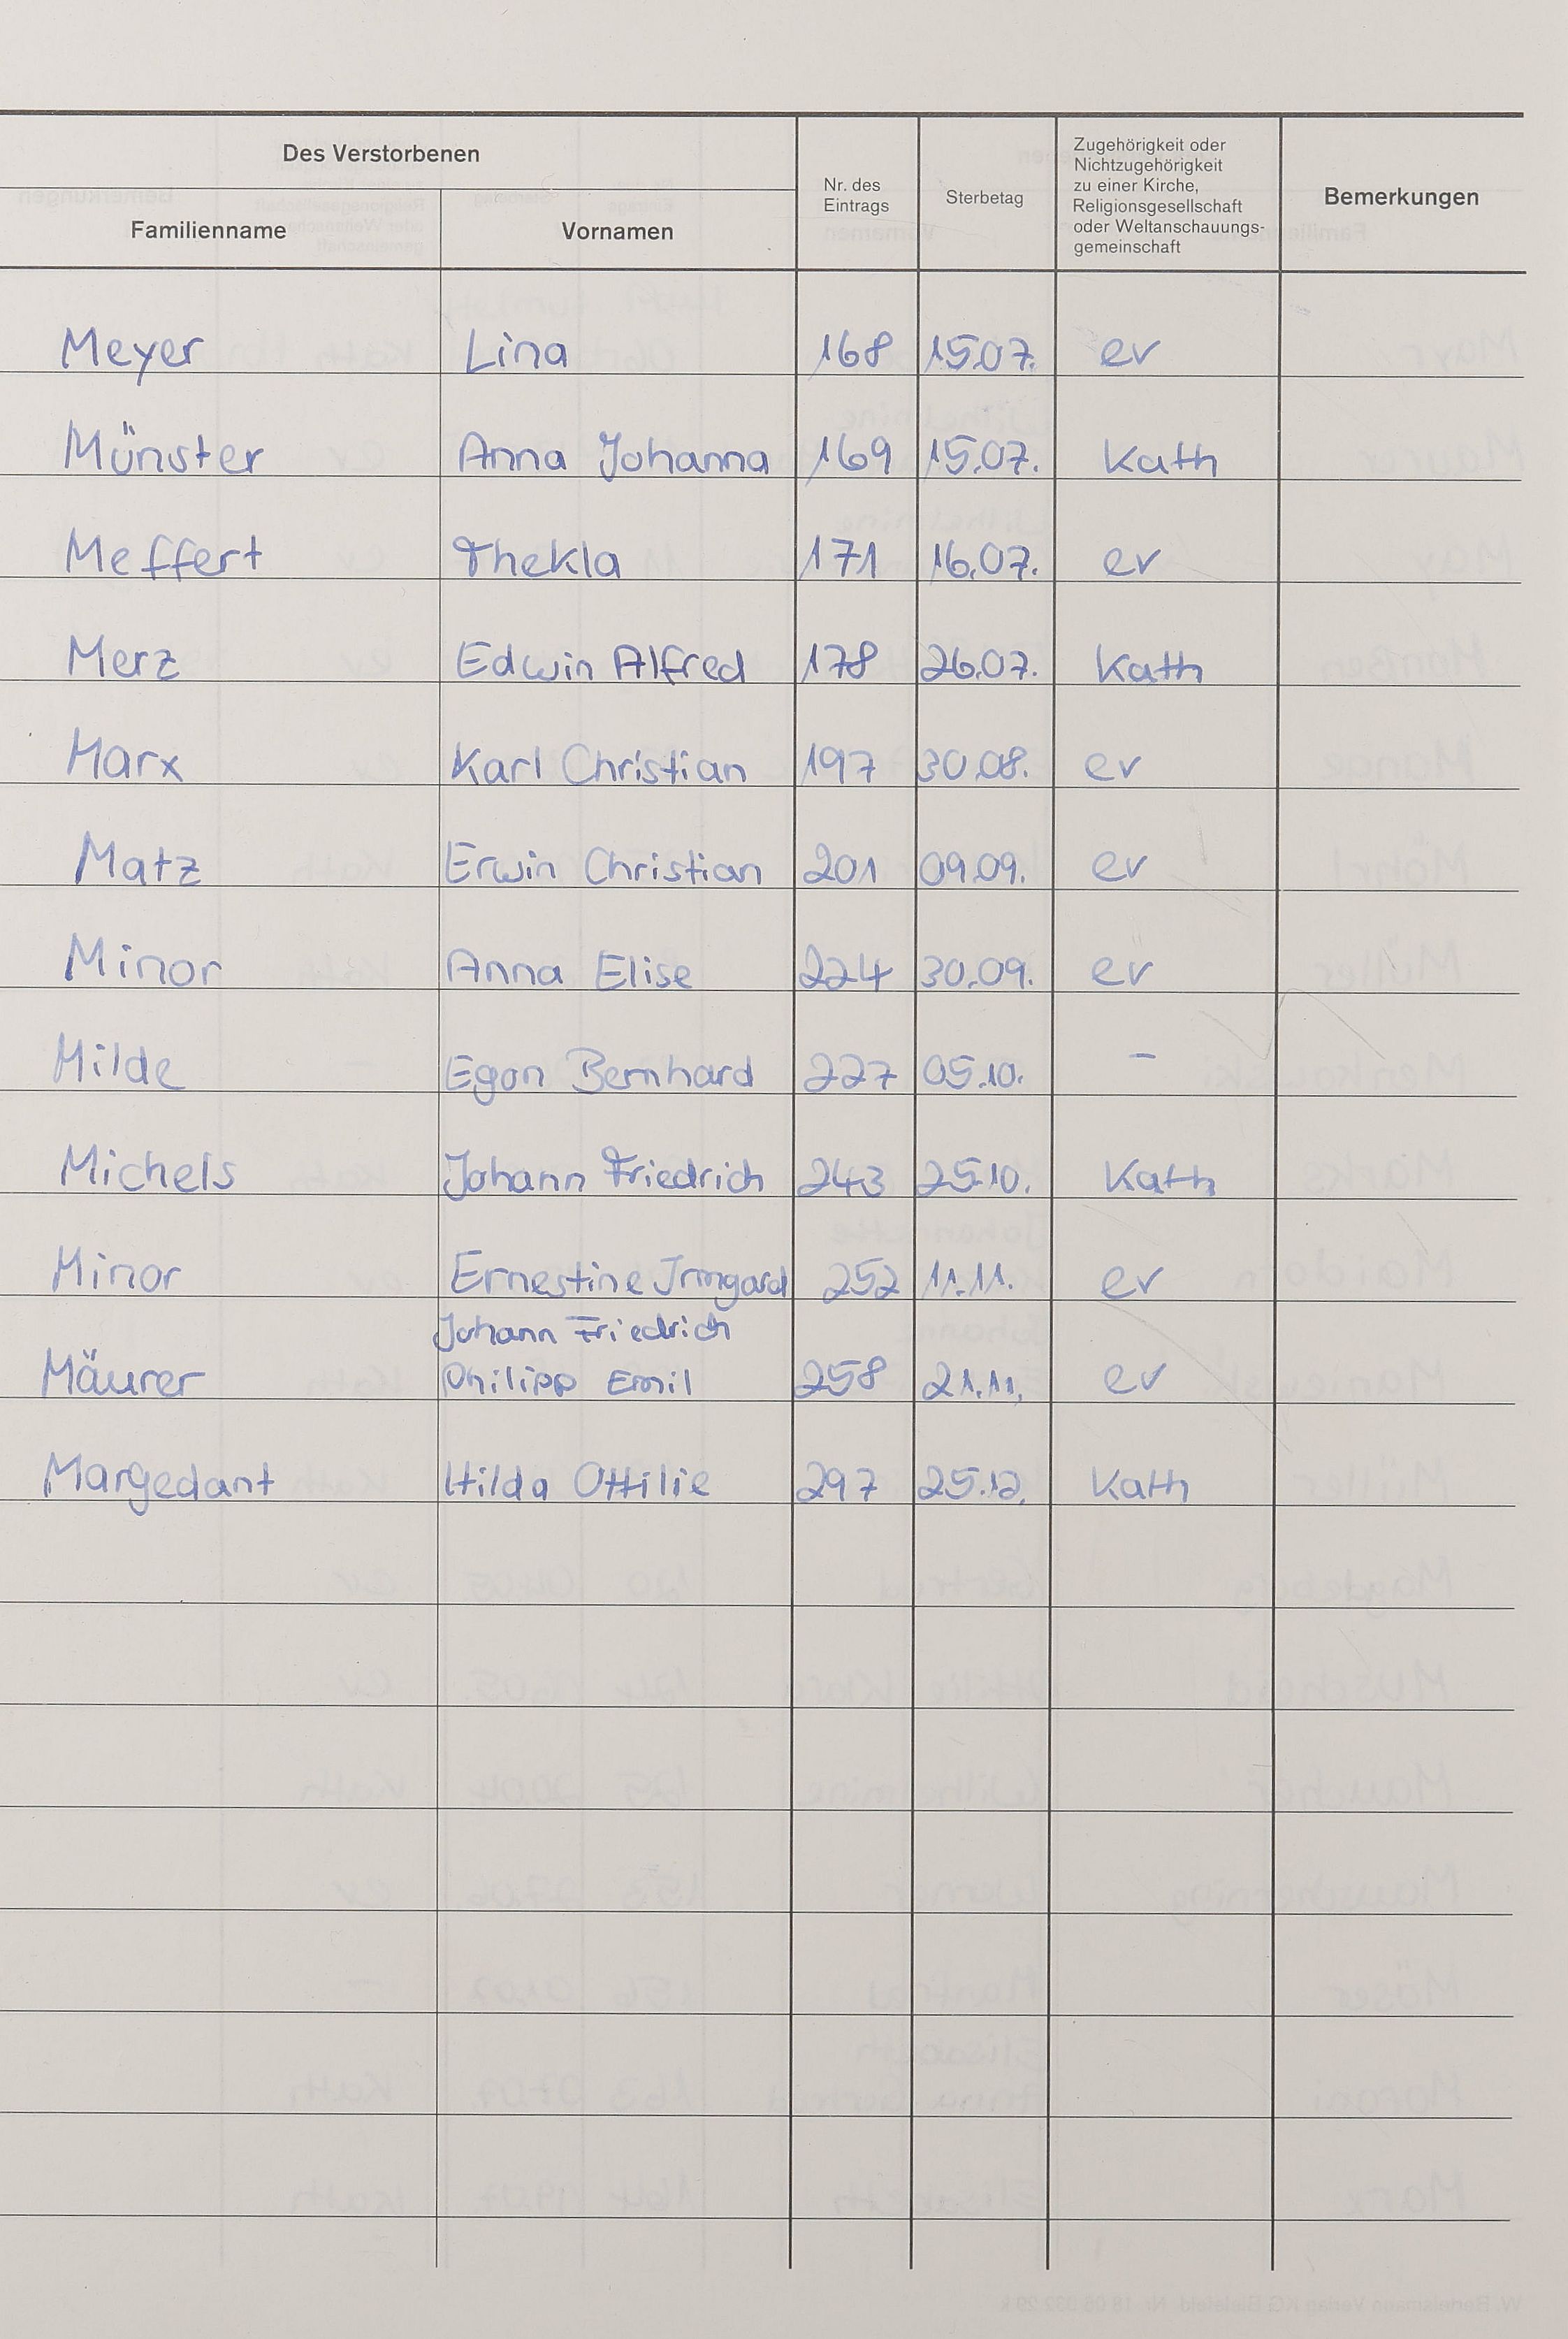 Des Verstorbenen
Familienname Vornamen Nr. des Eintrags Sterbetag Zugehörigkeit oder Nichtzugehörigkeit zu einer Kirche, Religionsgesellschaft oder Weltanschauungs- gemeinschaft Bemerkungen
Meyer Lina 168 15.07. ev
Münster Anna Johanna 169 15.07. Kath
Meffert Thekla 171 16.07. ev
Merz Edwin Alfred 178 26.07. Kath
Marx Karl Christian 197 30.08. ev
Matz Erwin Christian 201 09.09. ev
Minor Anna Elise 224 30.09. ev
Milde Egon Bernhard 227 05.10. –
Michels Johann Friedrich 243 25.10. Kath
Minor Ernestine Irmgard 252 11.11. ev
Johann Friedrich
Mäurer Philipp Emil 258 21.11. ev
Margedant Hilda Ottilie 297 25.12. Kath